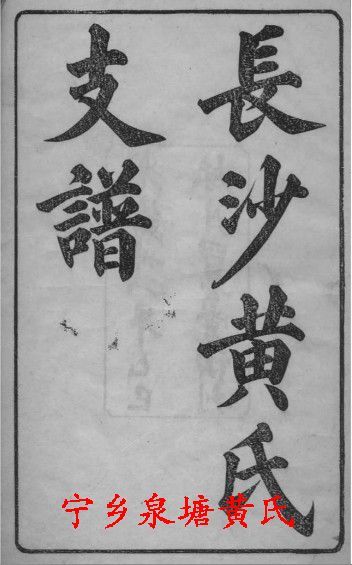 長沙黄氏
支譜
宁乡泉塘黄氏